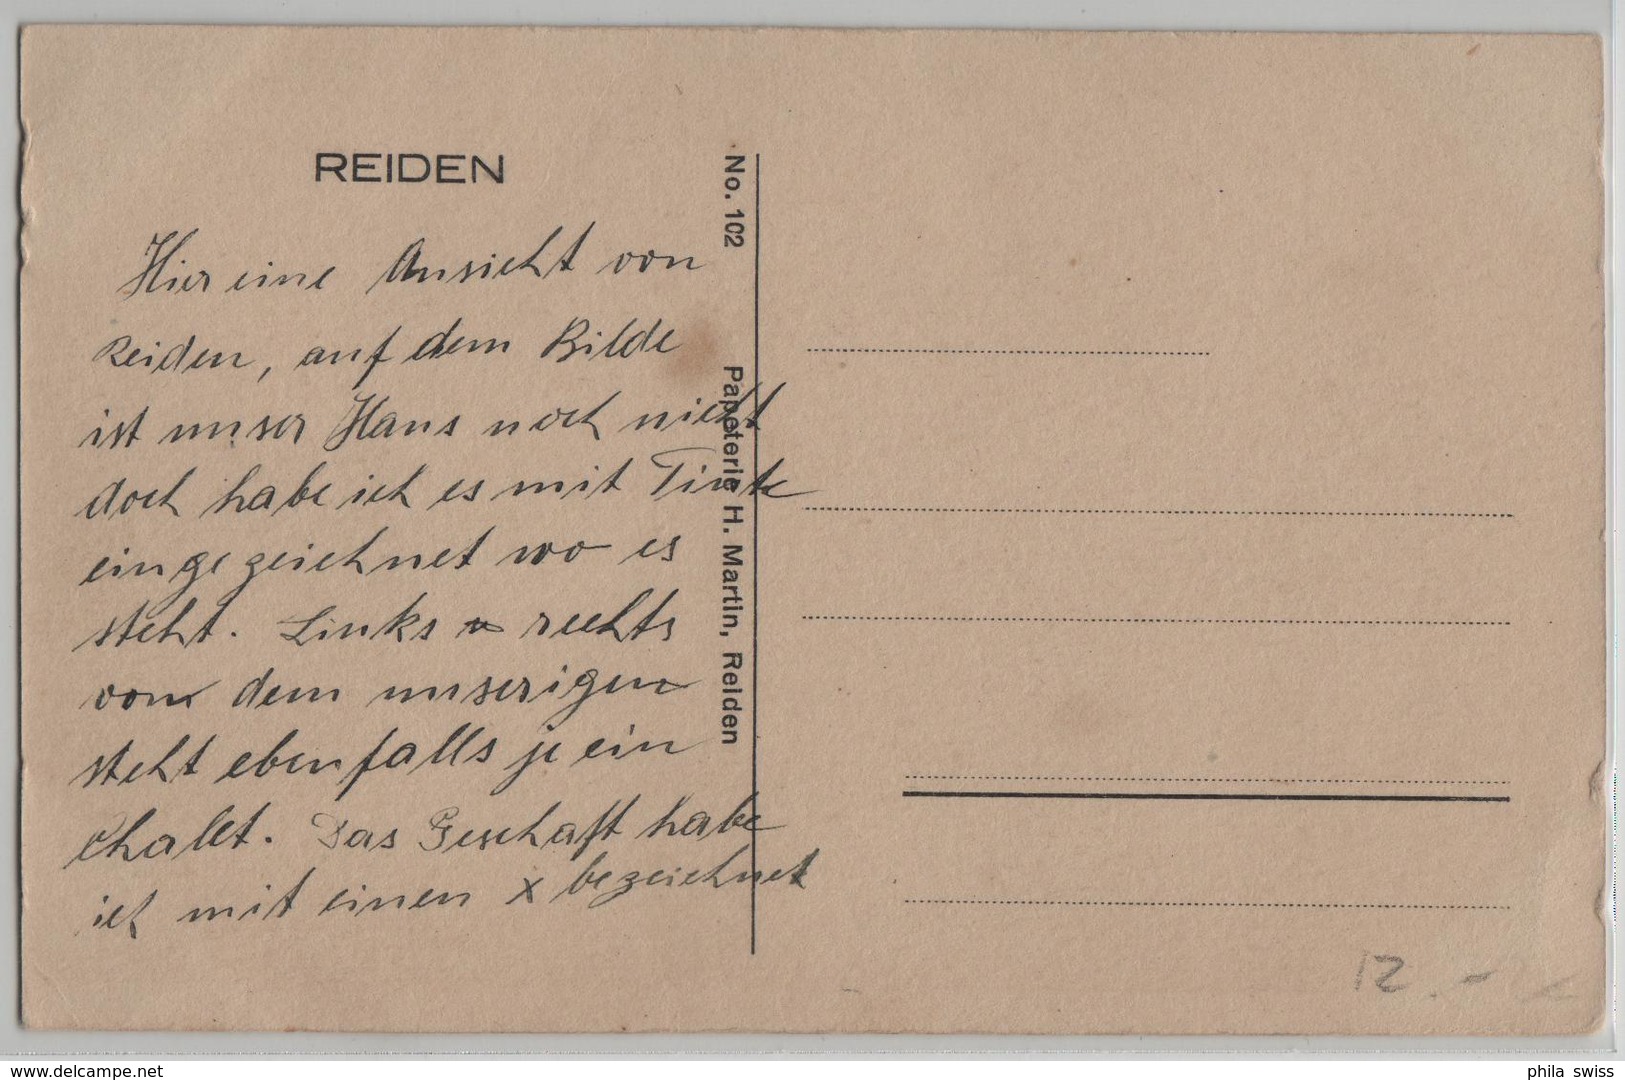 REIDEN
Hier eine Ansicht von
Reiden, auf dem Bilde
ist unser Haus noch nicht
doch habe ich es mit Tinte
eingezeichnet wo es
steht. Links u rechts
vom dem unserigen
steht ebenfalls je ein
Chalet. Das Geschäft habe
ich mit einen x bezeichnet
No. 102 Papeterie H. Martin, Reiden
12.-
delcampe.net
phila swiss